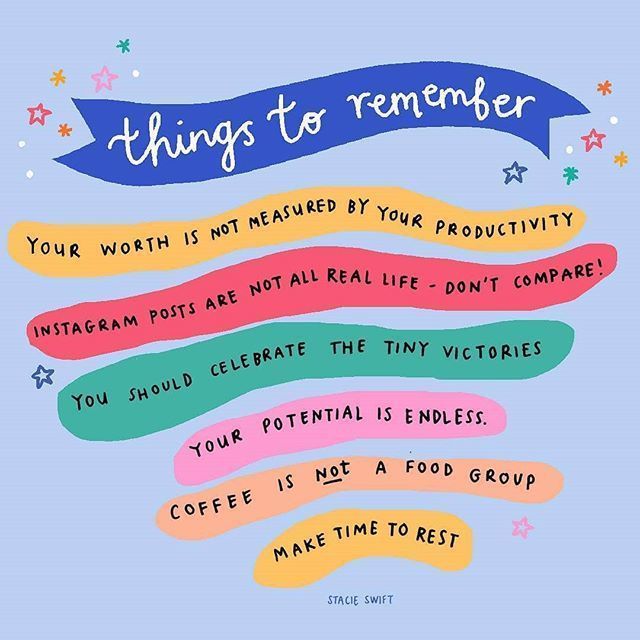 things to remember
YOUR WORTH IS NOT MEASURED BY YOUR PRODUCTIVITY
INSTAGRAM POSTS ARE NOT ALL REAL LIFE - DON'T COMPARE!
YOU SHOULD CELEBRATE THE TINY VICTORIES
YOUR POTENTIAL IS ENDLESS.
COFFEE IS NOt A FOOD GROUP
MAKE TIME TO REST
STACIE SWIFT